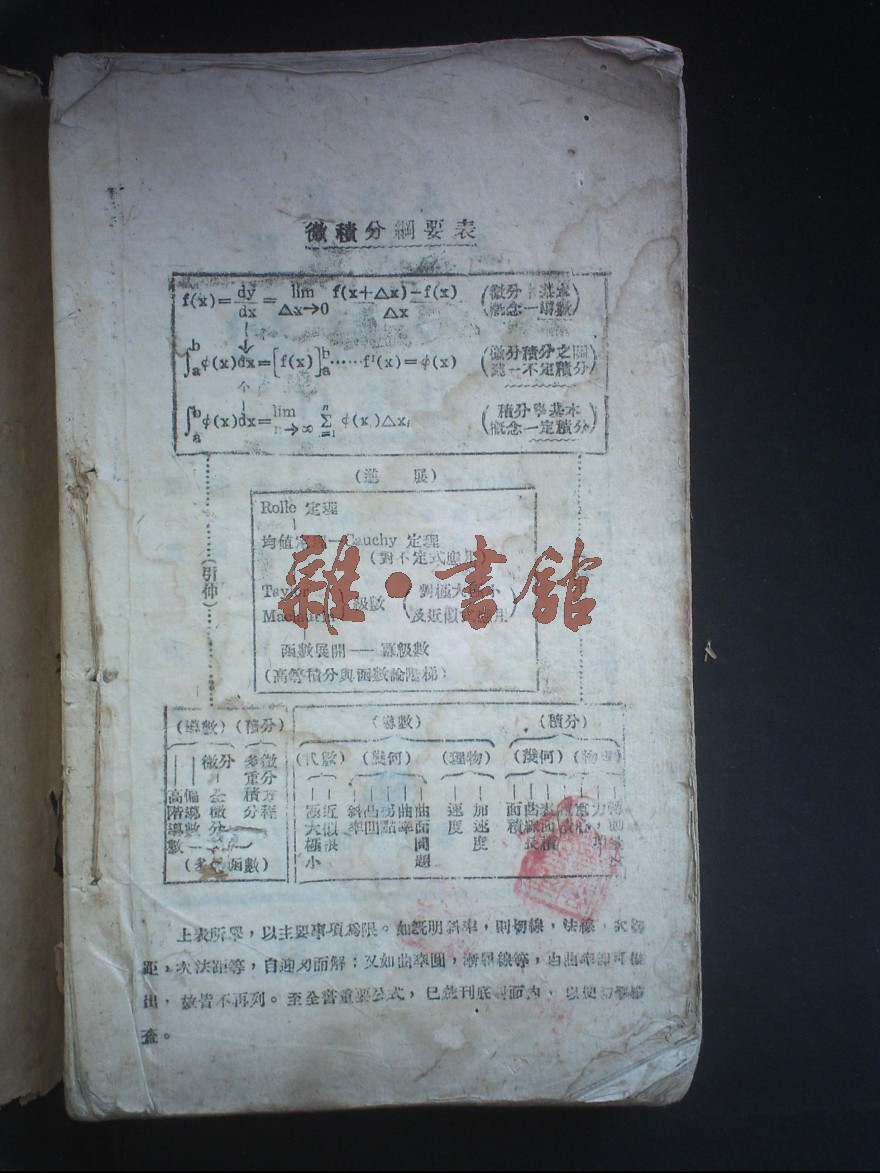 微積分綱要表
f(x)=dy/dx=lim Δx→0 f(x+Δx)-f(x)/Δx (微分 基本概念—導數)
∫ab φ(x)dx=[f(x)]ab……f'(x)=φ(x) (微分積分之關 —不定積分)
∫ab φ(x)dx=lim n→∞ Σ φ(x)Δx (積分 基本概念—定積分)
(進 展)
Rolle 定理
均值定理—Cauchy 定理
(對不定式應用)
(引伸)
Taylor
Maclaurin
級數
(對極大極小
及近似式應用)
函數展開——冪級數
(高等積分與函數論階梯)
雜·書館
(導數) (積分)
(導數)
(積分)
微分
(代數) (幾何) (理物) (幾何) (物理)
高階導數
偏導數
全微分
多重積分
微分方程
極大極小
近似
斜率
曲凹
拐點
曲率
曲面問題
速度
加速度
面積
曲線長
(多 函數)
上表所舉，以主要事項爲限。如旣明斜率，則切線，法線，次切
距，次法距等，自迎刃而解；又如曲率圓，漸 線等，由曲率 可
出，故皆不再列。至全書重要公式，已 刊底 面內，以便
查。